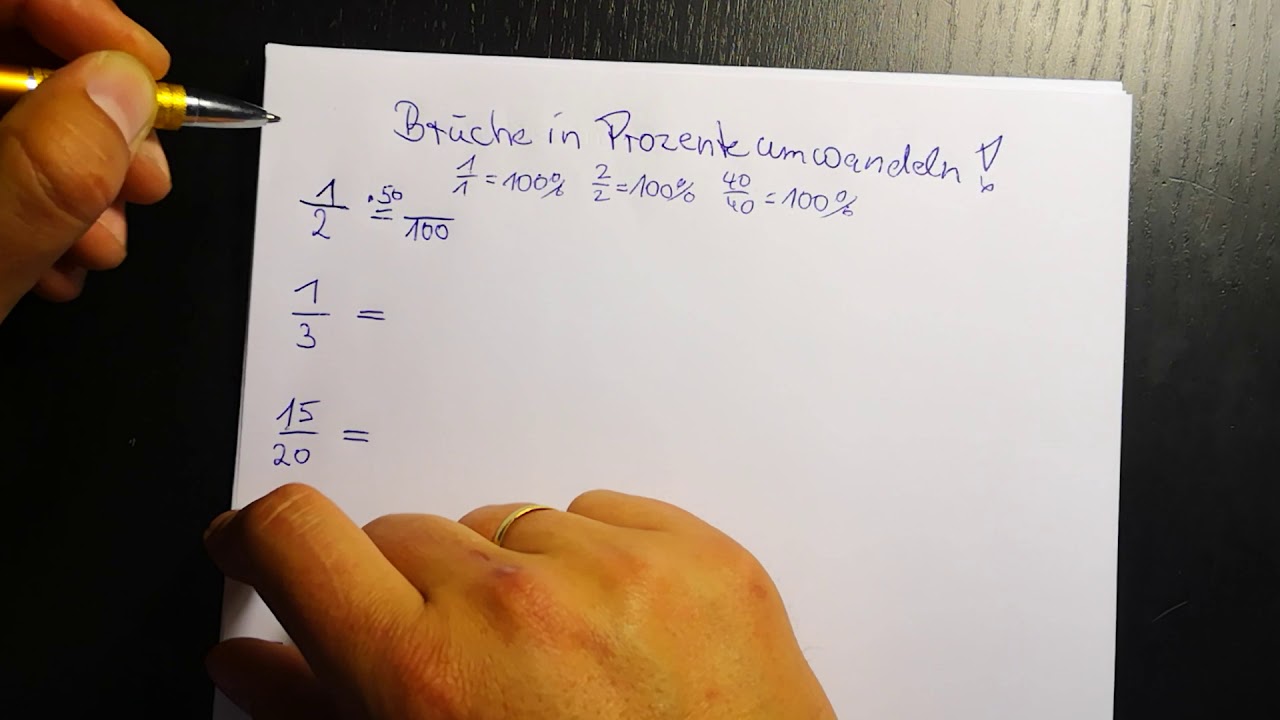 Brüche in Prozente umwandeln!
1/1 = 100% 2/2 = 100% 40/40 = 100%
1/2 ·50 = /100
1/3 =
15/20 =